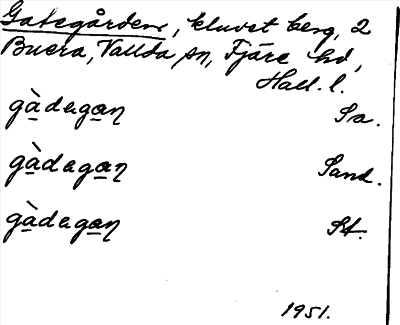 Gategårdene, kluvet berg, 2
Buera, Vallda sn, Fjäre hd,
Hall. l.
gàdagaη Sa.
gàdagaη Sand.
gàdagaη St.
1951.